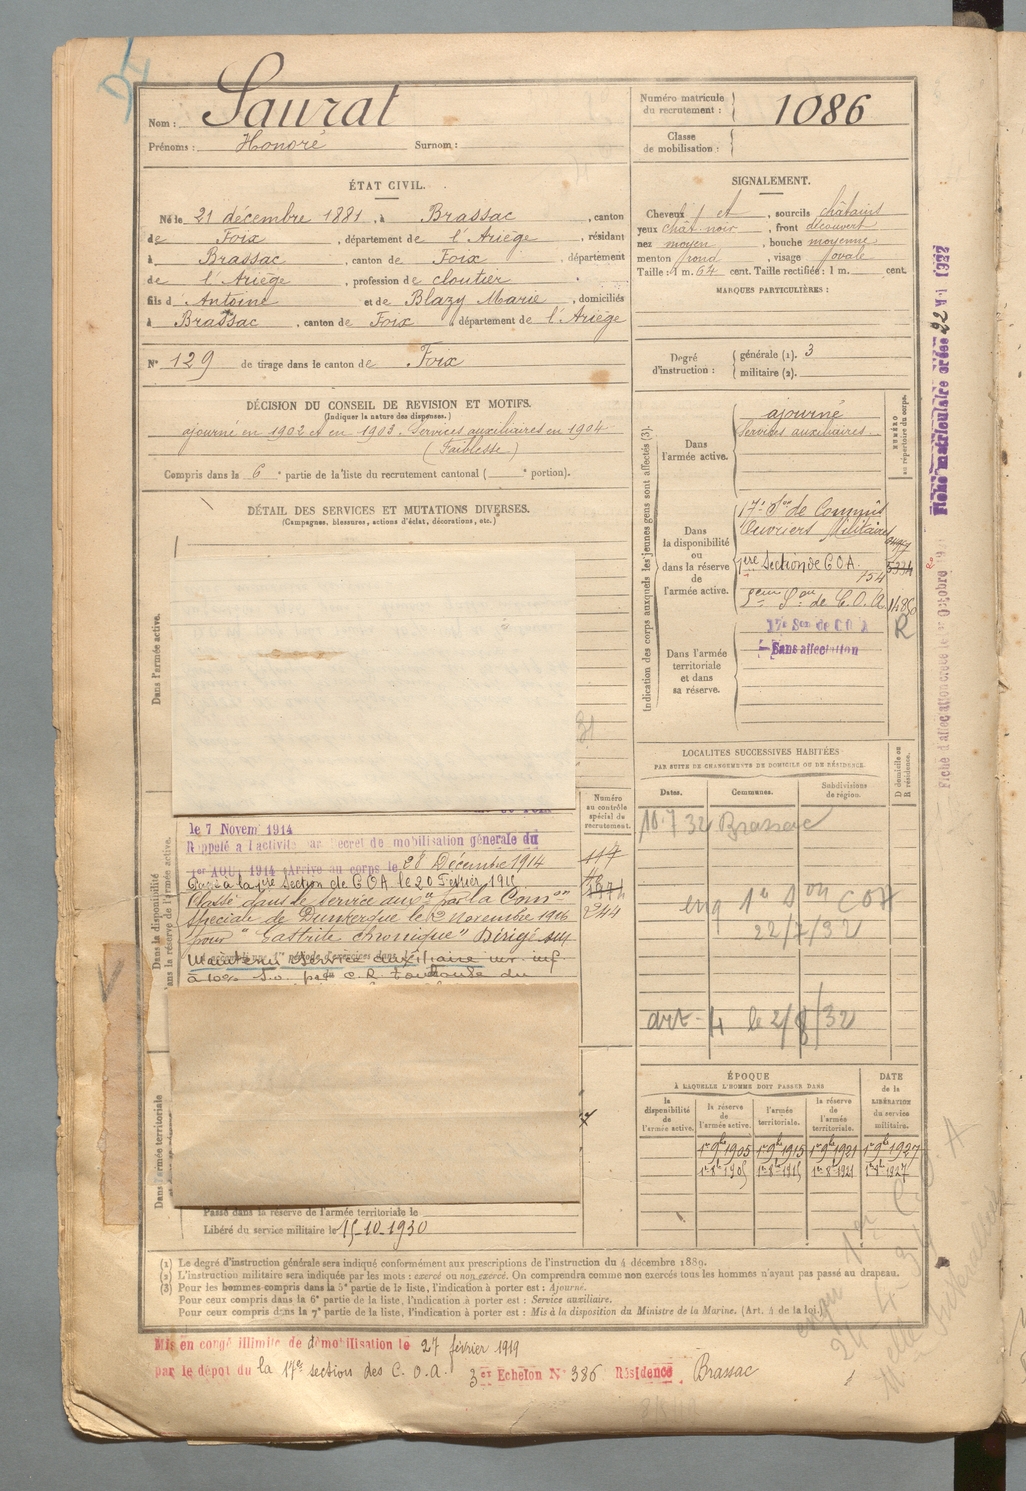 Nom : Saurat
Prénoms : Honoré Surnom :
Numéro matricule du recrutement : 1086
Classe de mobilisation :
ÉTAT CIVIL.
Né le 21 décembre 1881, à Brassac, canton
de Foix, département de l'Ariège, résidant
à Brassac, canton de Foix, département
de l'Ariège, profession de cloutier
fils d Antoine et de Blazy Marie, domiciliés
à Brassac, canton de Foix, département de l'Ariège
N° 129 de tirage dans le canton de Foix
DÉCISION DU CONSEIL DE REVISION ET MOTIFS.
(Indiquer la nature des dispenses.)
ajourné en 1902 et en 1903. Services auxiliaires en 1904
(Faiblesse)
Compris dans la 6e partie de la liste du recrutement cantonal ( e portion).
DÉTAIL DES SERVICES ET MUTATIONS DIVERSES.
(Campagnes, blessures, actions d'éclat, décorations, etc.)
Dans l'armée active.
Dans la disponibilité
dans la réserve de l'armée active.
Numéro au contrôle spécial de recrutement.
le 7 Novem 1914
Rappelé à l'activité par Décret de mobilisation générale du
1er AOUT 1914 Arrivé au corps le 28 Décembre 1914
Passé à la 1ère Section de C.O.A. le 20 Février 191
Classé dans le service auxre par la Comon
Spéciale de Dunkerque le 2 Novembre 1916
pour "Gastrite chronique" Dirigé sur
Maintenu service auxiliaire inf.
à 10% C.R. Toulouse du
244
Dans l'armée territoriale
Passé dans la réserve de l'armée territoriale le
Libéré du service militaire le 15-10-1930
SIGNALEMENT.
Cheveux et, sourcils châtains
yeux chât. noir, front découvert
nez moyen, bouche moyenne
menton rond, visage ovale
Taille : 1 m. 64 cent. Taille rectifiée : 1 m. cent.
MARQUES PARTICULIÈRES :
Degré d'instruction : générale (1). 3
militaire (2).
Indication des corps auxquels les jeunes gens sont affectés (3).
NUMÉRO au répertoire du corps.
Dans l'armée active.
ajourné
Services auxiliaires
Dans la disponibilité ou dans la réserve de l'armée active.
17e Son de Commis
Ouvriers Militaires
1ère Section de C.O.A.
154
5334
Son de C.O.A. 1486
R
Dans l'armée territoriale et dans sa réserve.
17e Son de C O A
Sans affectation
LOCALITÉS SUCCESSIVES HABITÉES
PAR SUITE DE CHANGEMENTS DE DOMICILE OU DE RÉSIDENCE.
Dates. Communes. Subdivisions de région. D domicile ou R résidence.
10.7.32 Brassac
1e Son COA
22/7/32
art-4 le 2/8/32
ÉPOQUE
À LAQUELLE L'HOMME DOIT PASSER DANS
la disponibilité de l'armée active. la réserve de l'armée active. l'armée territoriale. la réserve de l'armée territoriale.
DATE de la LIBÉRATION du service militaire.
1er 9bre 1905 1er 9bre 1915 1er 9bre 1921 1er 9bre 1927
1er 8bre 1905 1er 8bre 1915 1er 8bre 1921 1er 8bre 1927
(1) Le degré d'instruction générale sera indiqué conformément aux prescriptions de l'instruction du 4 décembre 1889.
(2) L'instruction militaire sera indiquée par les mots : exercé ou non exercé. On comprendra comme non exercés tous les hommes n'ayant pas passé au drapeau.
(3) Pour les hommes compris dans la 5e partie de la liste, l'indication à porter est : Ajourné.
Pour ceux compris dans la 6e partie de la liste, l'indication à porter est : Service auxiliaire.
Pour ceux compris dans la 7e partie de la liste, l'indication à porter est : Mis à la disposition du Ministre de la Marine. (Art. 4 de la loi.)
Mis en congé illimité de démobilisation le 27 février 1919
par le dépôt du la 17e section des C.O.A. 3e Echelon N° 386 Résidence Brassac
Fiche matriculaire créée 22 1922
Fiche d'affectation créée le 1er Octobre